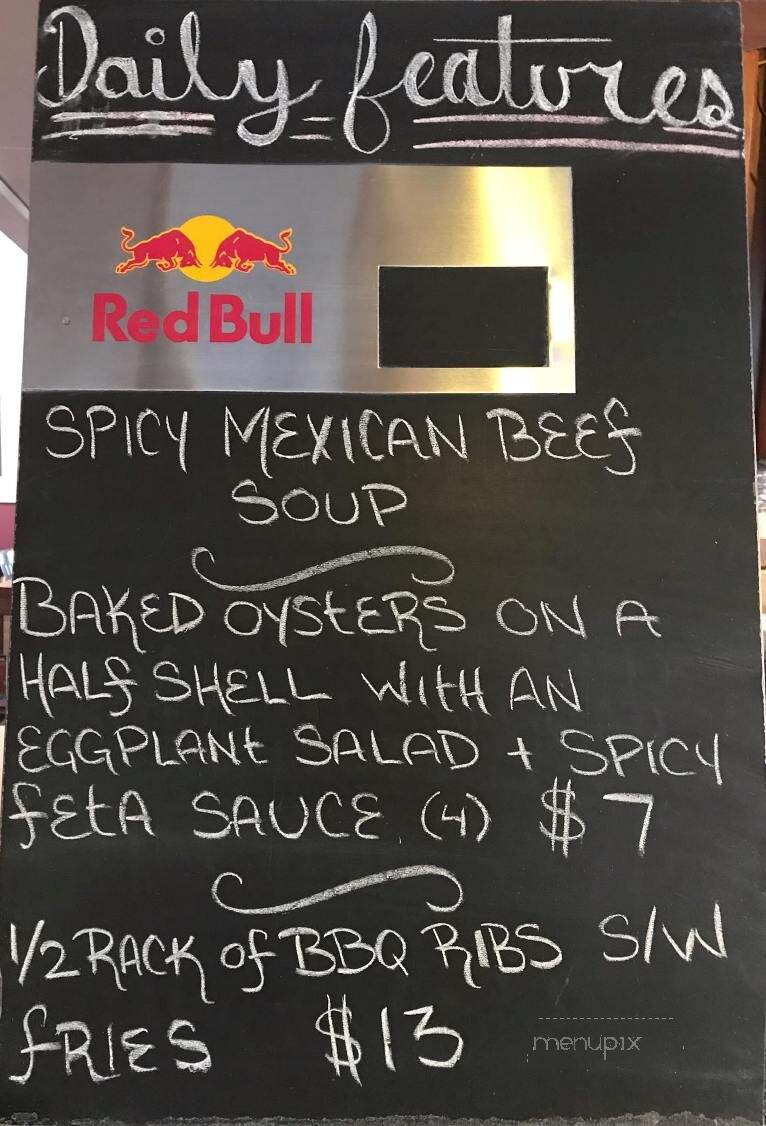 Daily features
Red Bull
SPICY MEXICAN BEEF
SOUP
BAKED OYSTERS ON A
HALF SHELL WITH AN
EGGPLANT SALAD + SPICY
FETA SAUCE (4) $7
1/2 RACK OF BBQ RIBS S/W
FRIES $13
menupix